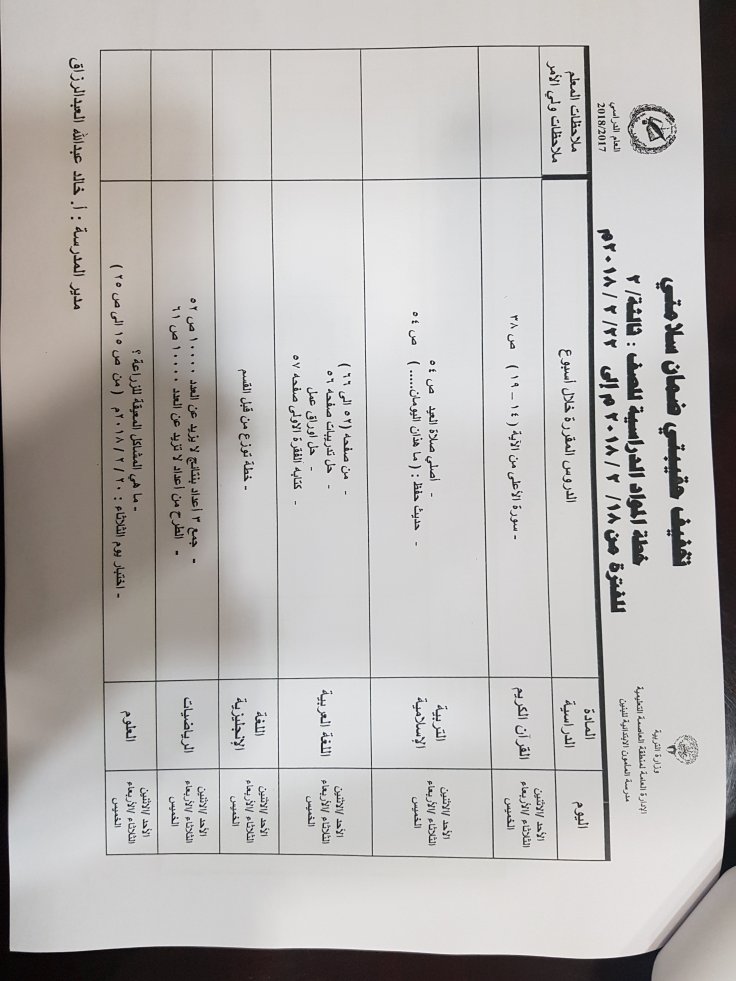 وزارة التربية
الإدارة العامة لمنطقة العاصمة التعليمية
مدرسة المأمون الابتدائية للبنين
العام الدراسي
2018/2017
تخفيف حقيبتي ضمان سلامتي
خطة المواد الدراسية للصف : ثالثة/ ٢
للفترة من ١٨/ ٢ / ٢٠١٨ م إلى ٢٢ / ٢ / ٢٠١٨م
اليوم
المادة الدراسية
الدروس المقررة خلال أسبوع
ملاحظات المعلم
ملاحظات ولي الأمر
الأحد /الاثنين
الثلاثاء /الأربعاء
الخميس
القرآن الكريم
- سورة الأعلى من الآية (١٤ – ١٩ ) ص ٣٨
الأحد /الاثنين
الثلاثاء /الأربعاء
الخميس
التربية الإسلامية
- أصلي صلاة العيد ص ٥٤
- حديث حفظ : ( ما هذان اليومان..... ) ص ٥٤
الأحد /الاثنين
الثلاثاء /الأربعاء
الخميس
اللغة العربية
- من صفحه (٥٢ الى ٦٦ )
- حل تدريبات صفحه ٥٦
- حل اوراق عمل
- كتابه الفقرة الاولى صفحه ٥٧
الأحد /الاثنين
الثلاثاء /الأربعاء
الخميس
اللغة الإنجليزية
- خطة توزع من قبل القسم
الأحد /الاثنين
الثلاثاء /الأربعاء
الخميس
الرياضيات
- جمع ٣ أعداد بناتج لا يزيد عن العدد ١٠٠٠٠ ص ٥٢
- الطرح من أعداد لا تزيد عن العدد ١٠٠٠٠ ص ٦١
الأحد /الاثنين
الثلاثاء /الأربعاء
الخميس
العلوم
- ما هي المشاكل المعيقة للزراعة ؟
- اختبار يوم الثلاثاء : ٢٠ / ٢ / ٢٠١٨م ( من ص ١٥ الى ص ٢٥ )
مدير المدرسة : أ. خالد عبدالله العبدالرزاق